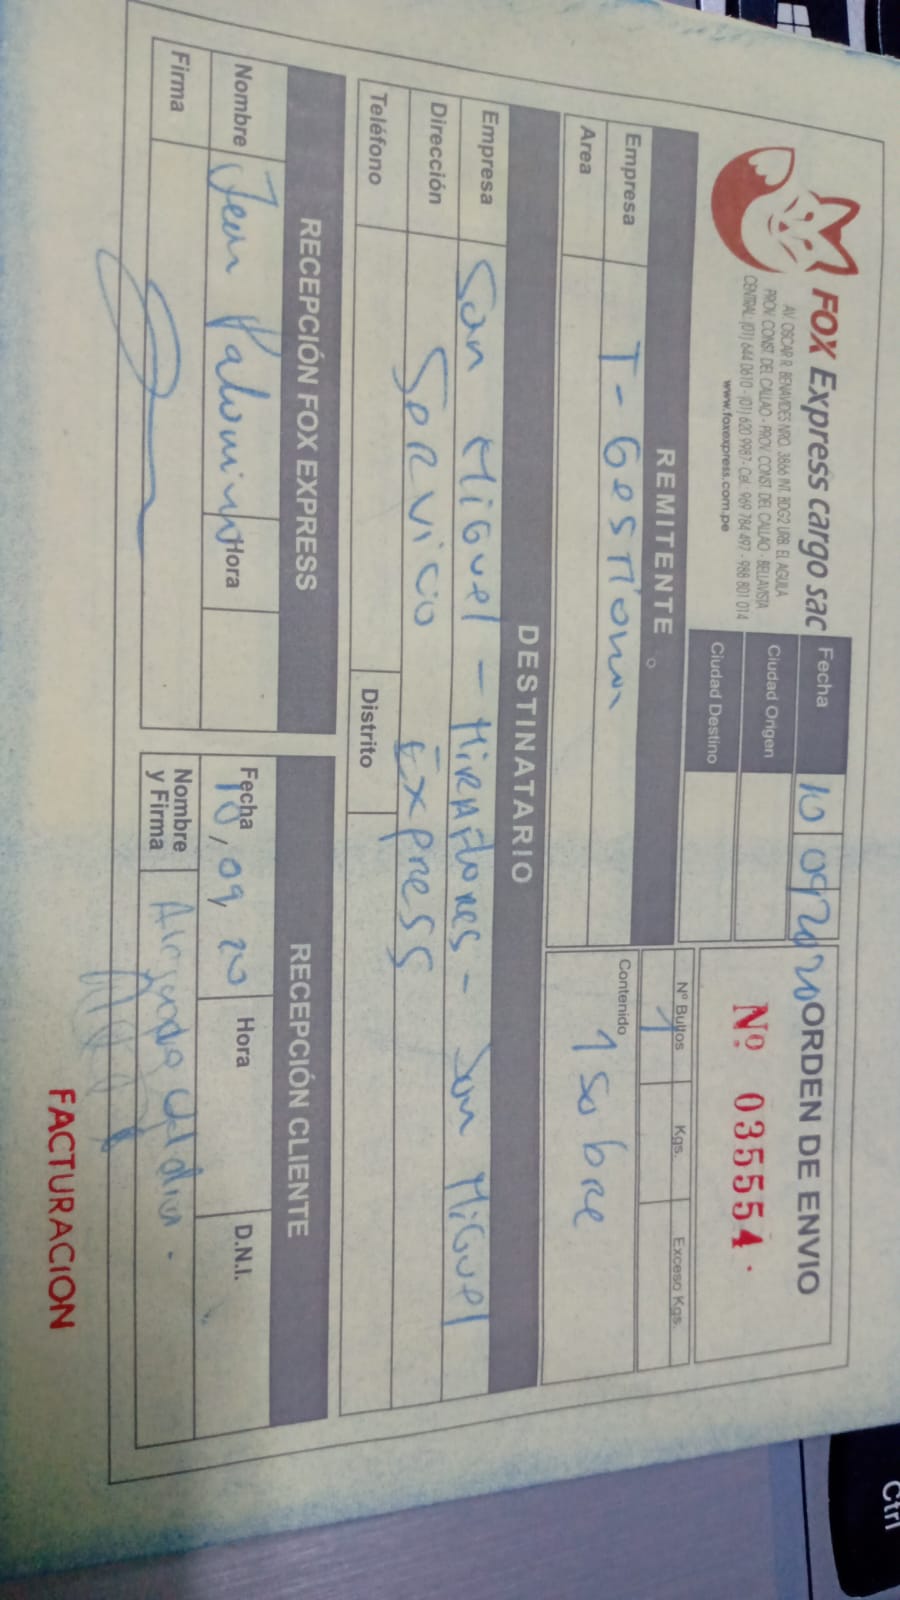 FOX Express cargo sac
AV. OSCAR R. BENAVIDES NRO. 3866 INT. BDG2 URB. EL AGUILA
PROV. CONST. DEL CALLAO - PROV. CONST. DEL CALLAO - BELLAVISTA
CENTRAL: (01) 644 0610 - (01) 620 9987 - Cel. 969 784 497 - 988 801 014
www.foxexpress.com.pe
Fecha 10 09 2020
Ciudad Origen
Ciudad Destino
ORDEN DE ENVIO
Nº 035554
REMITENTE
Empresa T-Gestiona
Area
Nº Bultos Kgs. Exceso Kgs.
1
Contenido
1 Sobre
DESTINATARIO
Empresa San Miguel - Miraflores - San Miguel
Dirección Servicio Express
Teléfono Distrito
RECEPCIÓN FOX EXPRESS
Nombre Jean Palomino Hora
Firma
RECEPCIÓN CLIENTE
Fecha 10, 09, 20 Hora D.N.I.
Nombre
y Firma
FACTURACION
Ctrl